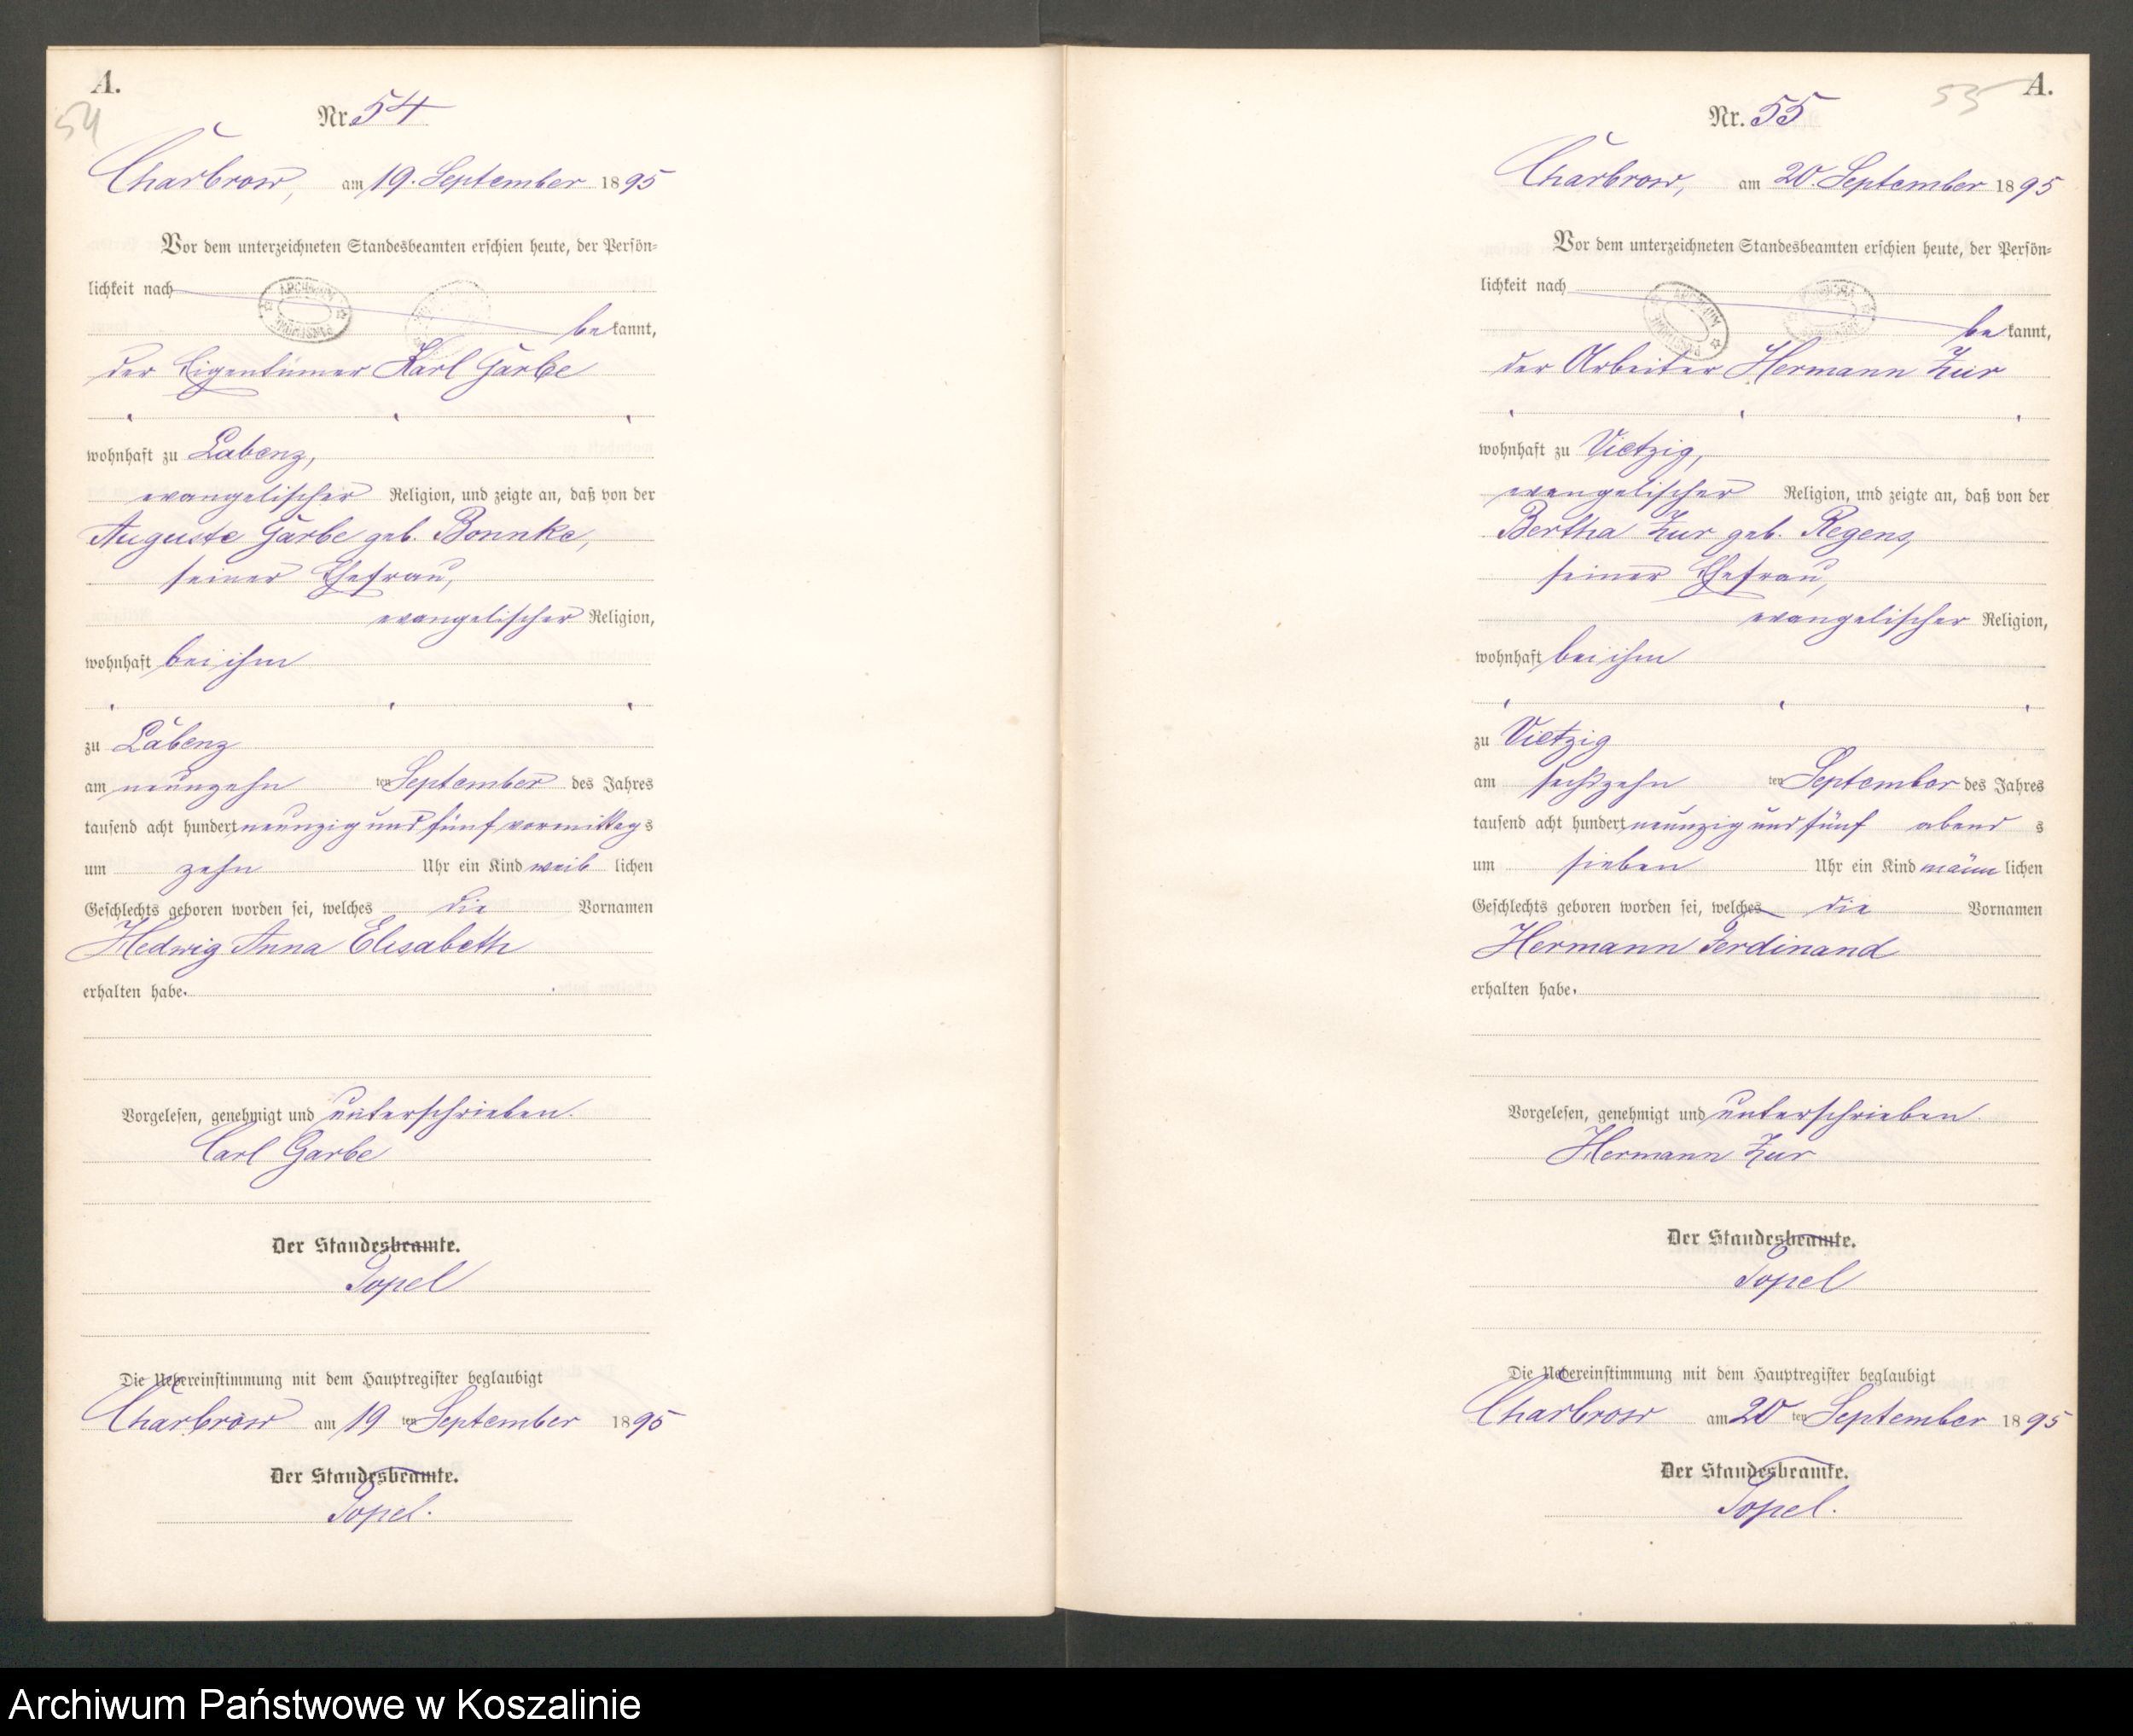 A.
54
Nr. 54
Charbrow, am 19. September 1895
Vor dem unterzeichneten Standesbeamten erschien heute, der Persön-
lichkeit nach
bekannt,
der Eigentümer Karl Garbe
wohnhaft zu Labenz,
evangelischer Religion, und zeigte an, daß von der
Auguste Garbe geb. Bonnke,
seiner Ehefrau,
evangelischer Religion,
wohnhaft bei ihm
zu Labenz
am neunzehn ten September des Jahres
tausend acht hundert neunzig und fünf vormittags
um zehn Uhr ein Kind weiblichen
Geschlechts geboren worden sei, welches die Vornamen
Hedwig Anna Elisabeth
erhalten habe.
Vorgelesen, genehmigt und unterschrieben.
Carl Garbe
Der Standesbeamte.
Topel
Die Uebereinstimmung mit dem Hauptregister beglaubigt
Charbrow am 19 ten September 1895
Der Standesbeamte.
Topel.
55
A.
Nr. 55
Charbrow, am 20. September 1895
Vor dem unterzeichneten Standesbeamten erschien heute, der Persön-
lichkeit nach
bekannt,
der Arbeiter Hermann Zur
wohnhaft zu Vietzig,
evangelischer Religion, und zeigte an, daß von der
Bertha Zur geb. Regens,
seiner Ehefrau,
evangelischer Religion,
wohnhaft bei ihm
zu Vietzig
am sechszehn ten September des Jahres
tausend acht hundert neunzig und fünf abends
um sieben Uhr ein Kind männlichen
Geschlechts geboren worden sei, welches die Vornamen
Hermann Ferdinand
erhalten habe.
Vorgelesen, genehmigt und unterschrieben.
Hermann Zur
Der Standesbeamte.
Topel
Die Uebereinstimmung mit dem Hauptregister beglaubigt
Charbrow am 20 ten September 1895
Der Standesbeamte.
Topel.
Archiwum Państwowe w Koszalinie